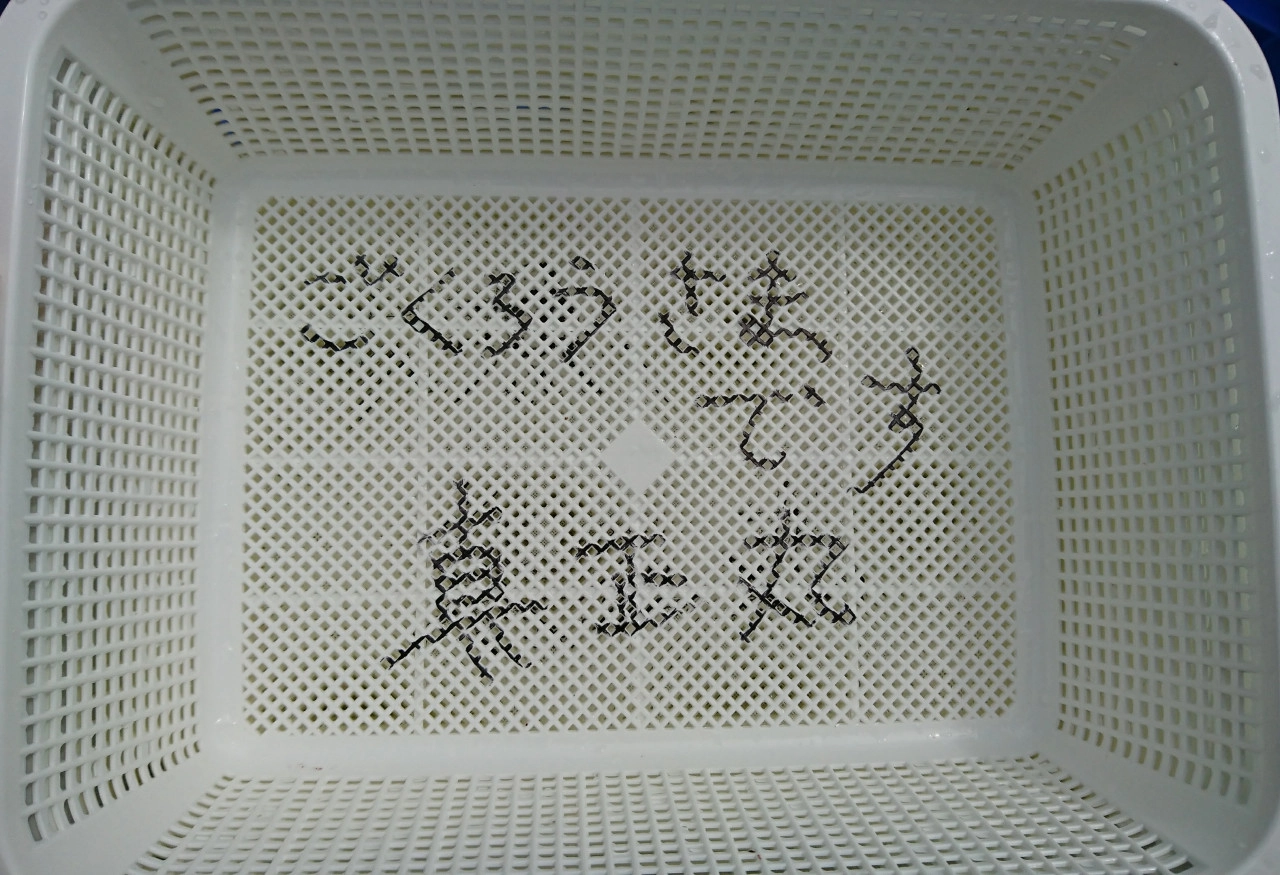 ごくろうさま
です
真正丸